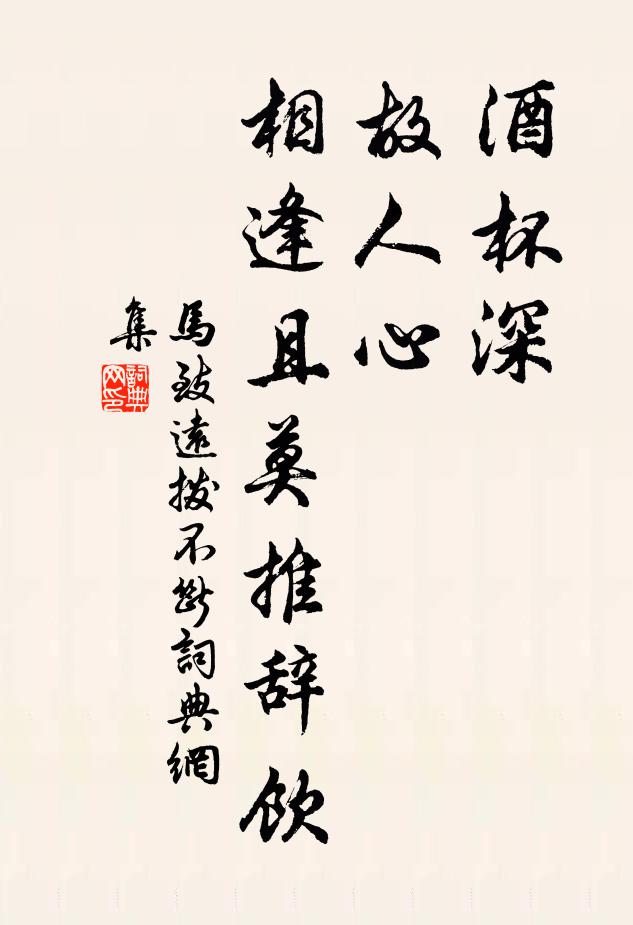 酒杯深
故人心
相逢且莫推辞飲
馬致遠撥不斷詞典網
集
詞典网印